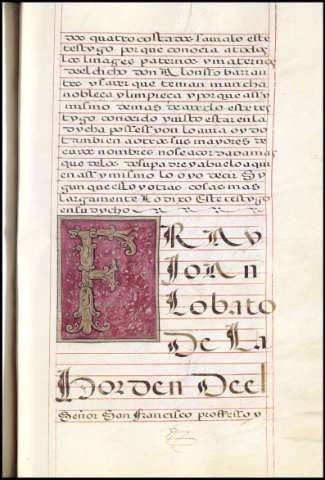 dos quatro costados sauialo este
testygo porque conocia a todos
los linages paternos y maternos
del dicho don Alonsso barran
tes y saver que tenian muncha
nobleça y limpieça y porque assy
mismo demas de averlo este tes
tygo conocido y visto estar en la
dycha possessyon lo avia oydo
tambien a otros sus mayores de
cuyos nombres no se acordava mas
que de los de su padre y abuelo a quy
en assy mismo lo oyo decir Sy
gun que esto y otras cosas mas
largamente Lo dixo Este testygo
en su dycho
FRAY
JOAN
Lobato
De La
Horden Deel
Señor San Francisco proffesso y